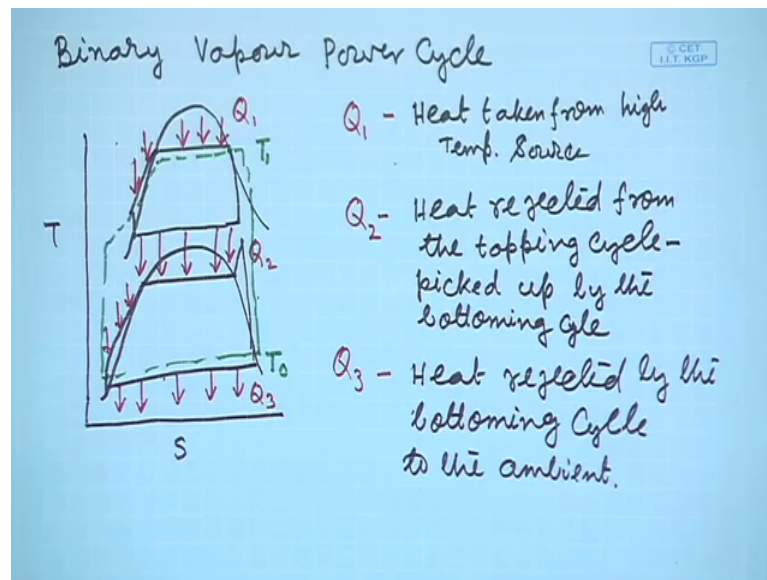 Binary Vapour Power Cycle
© CET
I.I.T. KGP
Q1 - Heat taken from high
Temp. Source
Q2 - Heat rejected from
the topping cycle -
picked up by the
bottoming cycle
Q3 - Heat rejected by the
bottoming Cycle
to the ambient.
Q1
T1
T
Q2
T0
Q3
S